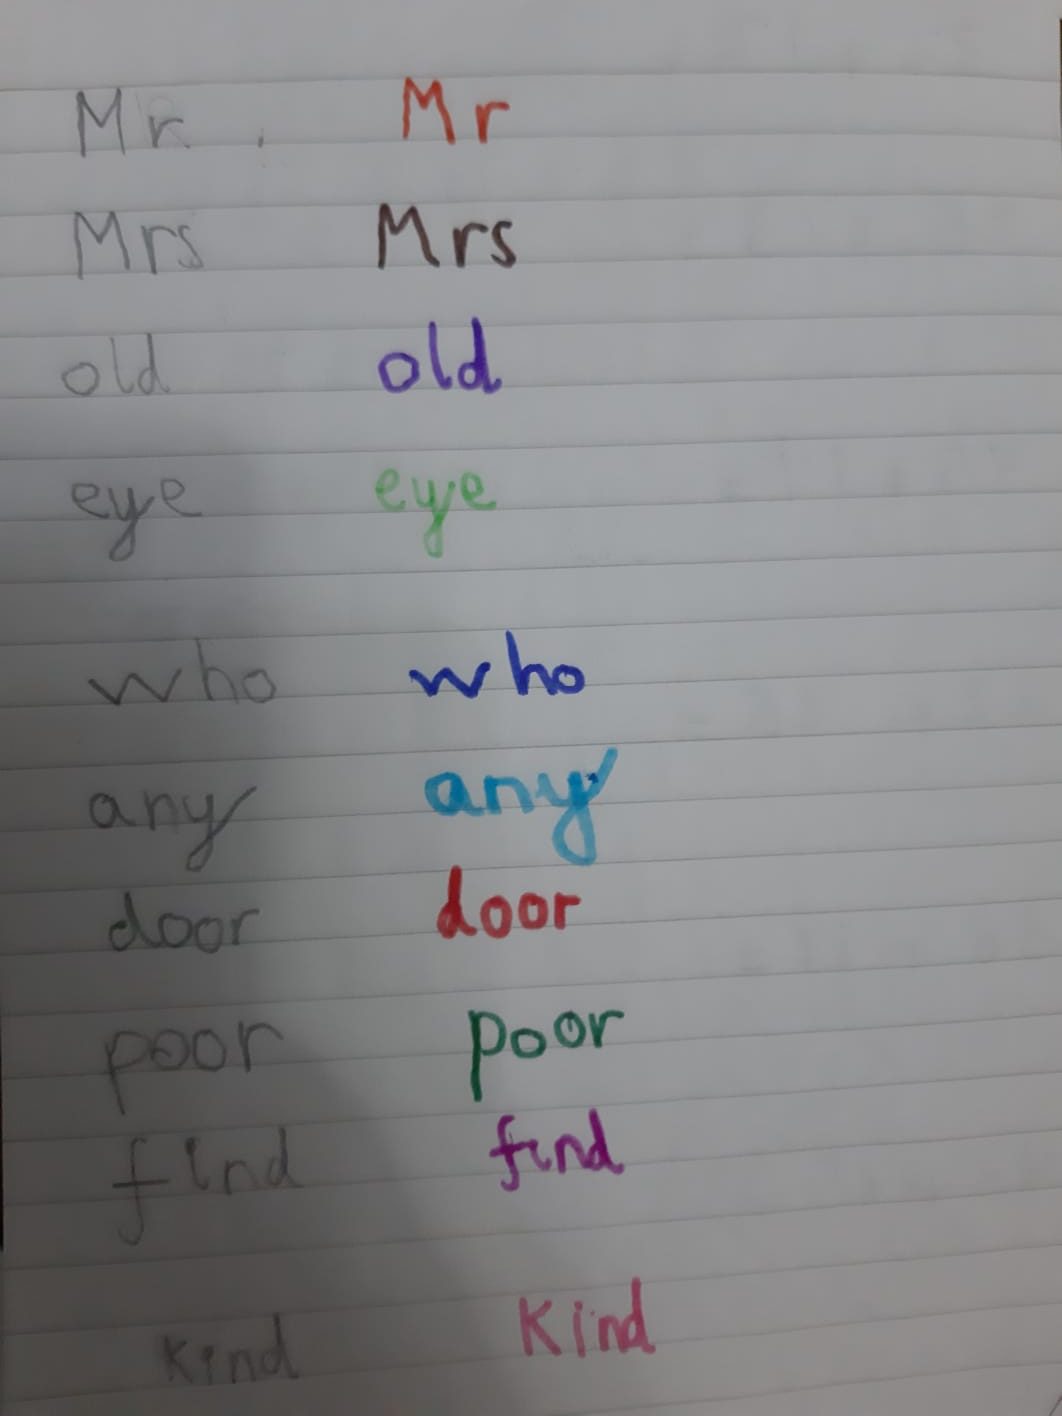 Mr. Mr
Mrs Mrs
old old
eye eye
who who
any any
door door
poor poor
find find
kind Kind